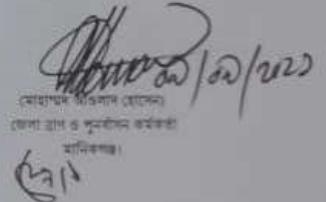 ০৯/০৯/২০২১
(মোহাম্মদ আওলাদ হোসেন)
জেলা ত্রাণ ও পুনর্বাসন কর্মকর্তা
মানিকগঞ্জ।